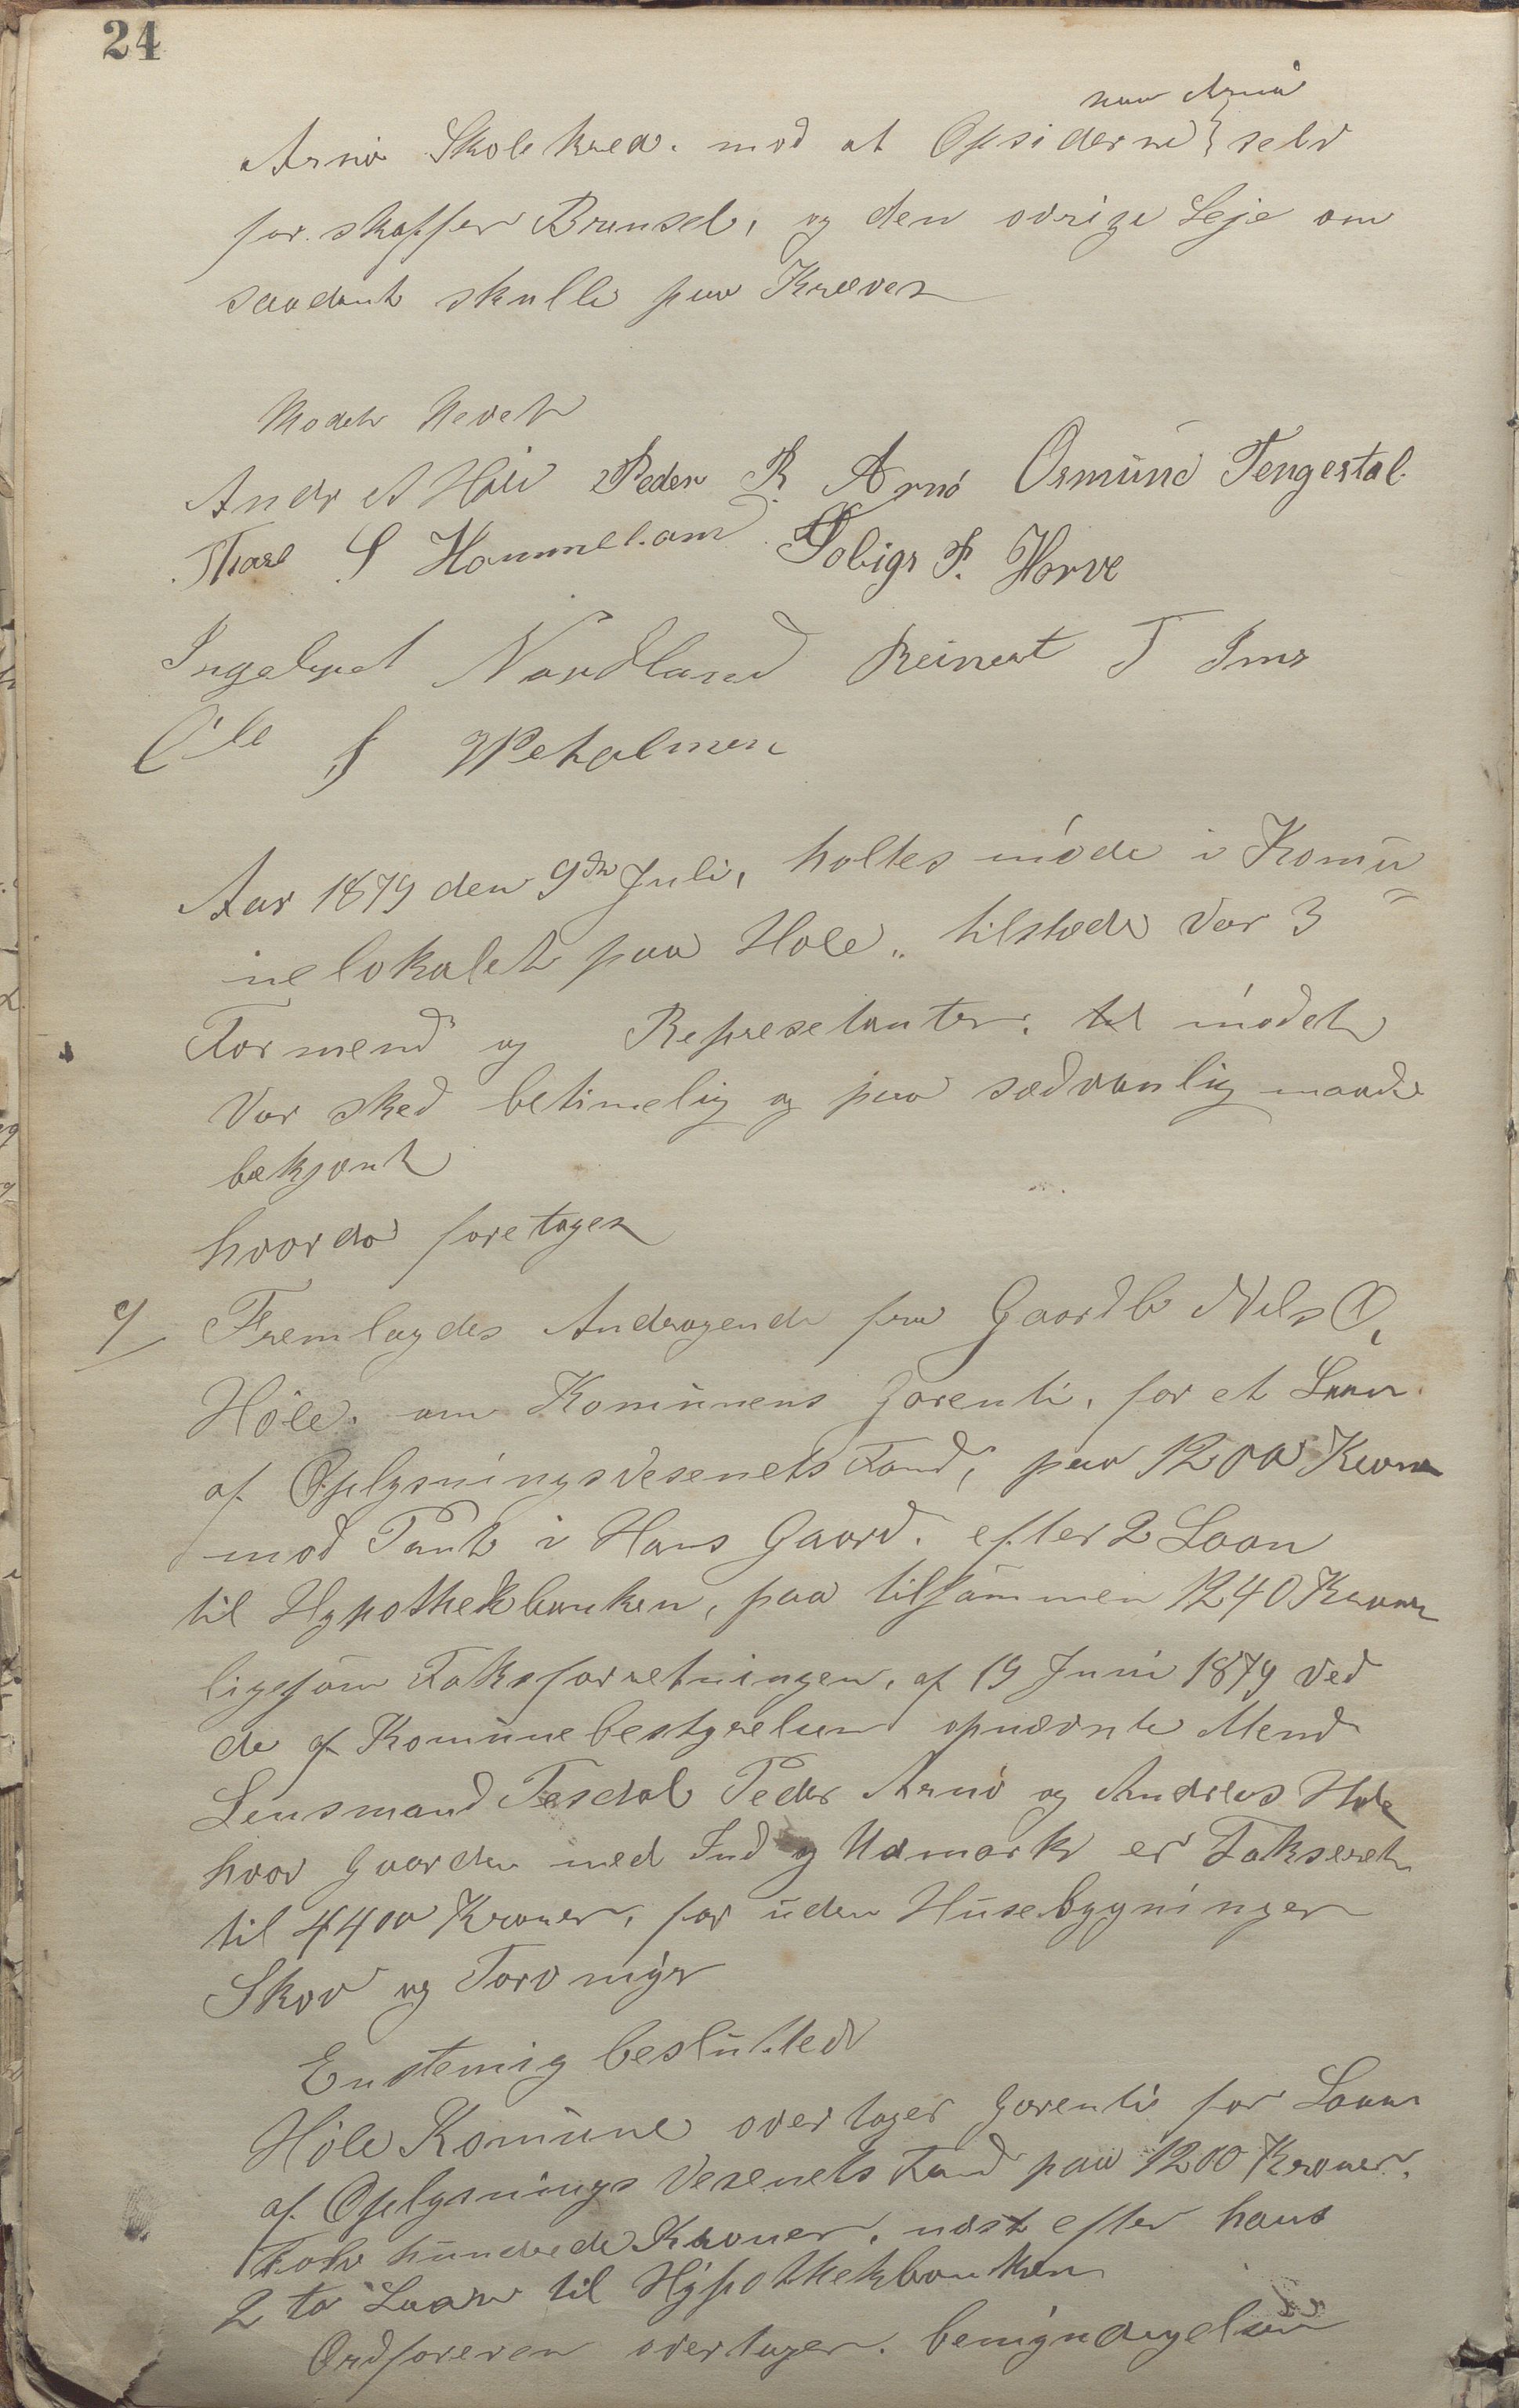 24
paa Arnø
Arnø Skolekreds. mod at Opsiderne selv
for skaffer Brensel, og den ovrige Leje om
saadant skulle paa Kræves
Modet Hevet
Andr A Høle Peder R. Arnó Osmund Tengesdal.
Tharl S Hommeland Tobias P. Horve
Ingebret Nordland Reinert T Ims
Ole J Vetholmen
Aar 1879 den 9de Juli, holtes móde i Komu
nelokalet paa Hole„ tilstede Var 3
Formend og Represetanter. til módet
Var sked betimelig og paa sædvanlig maade
bekjent
hvorda foretages
Fremlagdes Andragende fra Gaardb Nils O,
Hóle. om Komunens Garenti, for et Laan
af Oplysningsvesenets Fond, paa 1200 Kroner
mod Pant i Hans Gaard. efter 2 Laan
til Hypothekbanken, paa tilsammen 1240 Kroner
ligesom Taksforretningen, af 19 Juni 1879 ved
de af Komunebestyrelsen opnævnte Mend
Lensmand Tesdal Peder Arnó og Andreas Hole
hvor Gaarden med Ind og Udmark er Takseret
til 4400 Kroner, for uden Husebygninger
Skov og Torvmýr
Enstemig besluttedes
Hóle Komune overtager Garenti for Laan
af Oplysnings Vesenets Fond paa 1200 Kroner.
Tolv hundrede Kroner, næst efter hans
2 to Laan til Hýpothekbanken
Ordforeren overtager. bemýndigelsen